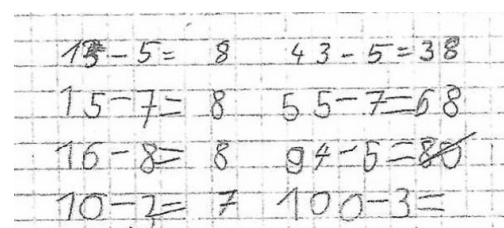 13 - 5 = 8 43 - 5 = 38
15 - 7 = 8 55 - 7 = 68
16 - 8 = 8 94 - 5 = 80
10 - 3 = 7 100 - 3 =